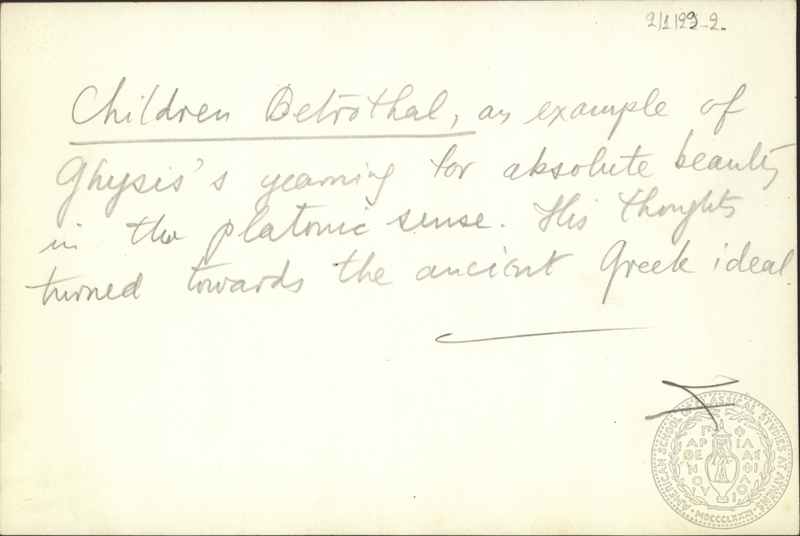 2/1/29-2.
Children Betrothal, an example of
Ghysis's yearning for absolute beauty
in the platonic sense. His thoughts
turned towards the ancient Greek ideal.
AMERICAN SCHOOL OF CLASSICAL STUDIES AT ATHENS
ΠΑΡΘΕΝΟΥ ΦΙΛΑΣ ΦΙΛΟΙ
· MDCCCLXXXI ·